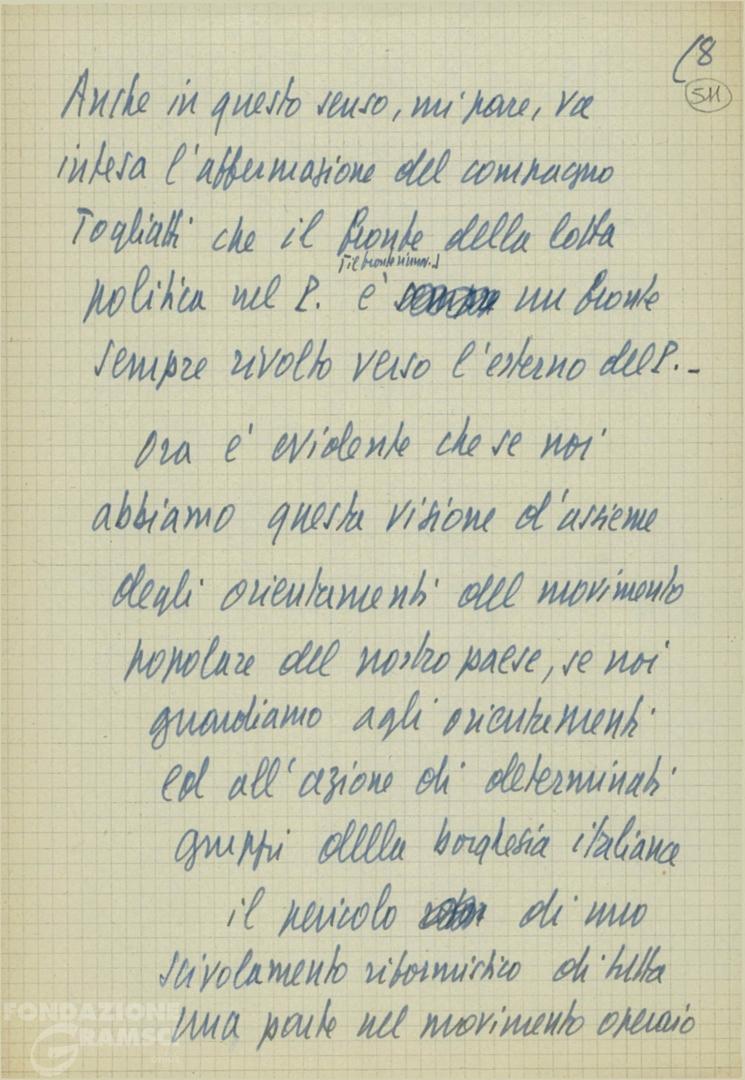 (8
511
Anche in questo senso, mi pare, va
intesa l'affermazione del compagno
Togliatti che il fronte della lotta
il fronte rinnov.
politica nel P. è sempre un fronte
sempre rivolto verso l'esterno del P. -
Ora è evidente che se noi
abbiamo questa visione d'assieme
degli orientamenti del movimento
popolare del nostro paese, se noi
guardiamo agli orientamenti
ed all'azione di determinati
gruppi della borghesia italiana
il pericolo di uno
scivolamento riformistico di tutta
una parte nel movimento operaio
FONDAZIONE
GRAMSCI